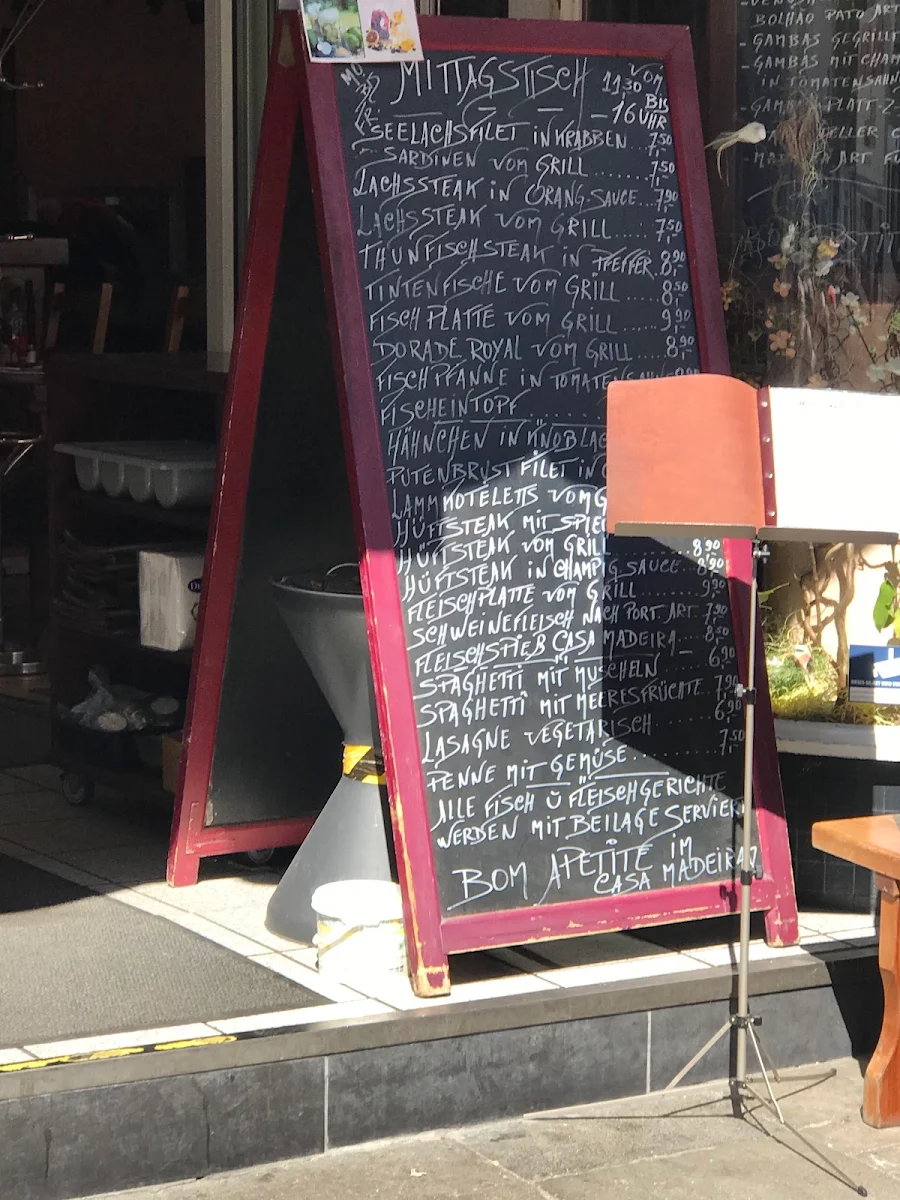 MO. BIS FR.
MITTAGSTISCH VOM 11,30 BIS – 16 UHR
SEELACHSFILET IN KRABBEN...7,50
SARDINEN VOM GRILL.......7,50
LACHSSTEAK IN ORANG.SAUCE...7,90
LACHSSTEAK VOM GRILL.....7,50
THUNFISCHSTEAK IN PFEFFER.8,90
TINTENFISCHE VOM GRILL.....8,50
FISCH PLATTE VOM GRILL.....9,90
DORADE ROYAL VOM GRILL.....8,90
FISCHPFANNE IN
FISCHEINTOPF
HÄHNCHEN IN
PUTENBRUST FILET IN
LAMMKOTELETTS VOM
HÜFTSTEAK MIT
HÜFTSTEAK VOM GRILL ...8,90
HÜFTSTEAK IN CHAMPIG.SAUCE...8,90
FLEISCHPLATTE VOM GRILL.....9,90
SCHWEINEFLEISCH NACH PORT.ART.7,90
FLEISCHSPIEß CASA MADEIRA....8,50
SPAGHETTI MIT MUSCHELN......6,90
SPAGHETTI MIT MEERESFRÜCHTE..7,90
LASAGNE VEGETARISCH.......6,90
PENNE MIT GEMÜSE............7,50
ALLE FISCH U FLEISCHGERICHTE
WERDEN MIT BEILAGE SERVIERT
BOM APETITE IM
CASA MADEIRA
BOLHAO PATO ART
- GAMBAS GEGRILLT
- GAMBAS MIT CHAM
IN TOMATENSAHN